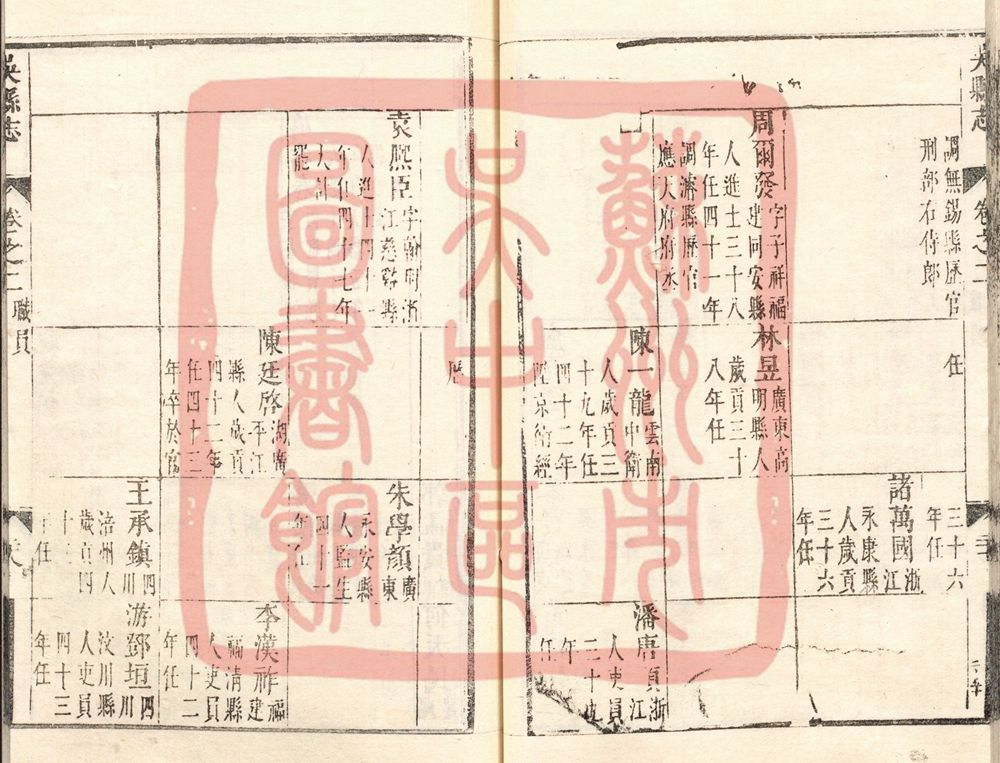 吳縣志
卷之二
調無錫縣歷官
刑部右侍郎
任
三十六
年任
諸萬國浙江
永康縣
人歲貢
三十六
年任
周爾發字子祥福
建同安縣
人進士三十八
年任四十一年
調濟縣歷官
應天府府丞
林昱廣東高
明縣人
歲貢三十
八年任
陳一龍雲南
中衛
人歲貢三
十九年任
四十二年
陞京衛經
歷
潘唐貞浙江
人吏員
三十
年
任
袁熙臣字翰明浙
江慈谿縣
人進十四十一
年任四十七年
大計
罷
朱學顏廣東
永安縣
人監生
四十一
年任
陳廷啓湖廣
平江
縣人歲貢
四十二年
任四十三
年卒於官
李漢祚福建
福清縣
人吏員
四十二
年任
王承鎮四川
涪州人
歲貢四
十
任
游鄧垣四川
汶川縣
人吏員
四十三
年任
吳縣志
卷之二
職員
蘇州市
吳中區
圖書館